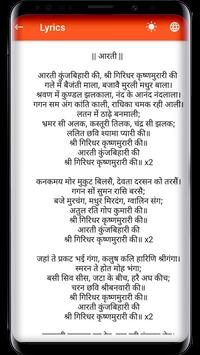 Lyrics
|| आरती ||
आरती कुंजबिहारी की, श्री गिरिधर कृष्णमुरारी की
गले में बैजंती माला, बजावै मुरली मधुर बाला।
श्रवण में कुण्डल झलकाला, नंद के आनंद नंदलाला।
गगन सम अंग कांति काली, राधिका चमक रही आली।
लतन में ठाढ़े बनमाली;
भ्रमर सी अलक, कस्तूरी तिलक, चंद्र सी झलक;
ललित छवि श्यामा प्यारी की॥
श्री गिरिधर कृष्णमुरारी की॥
श्री गिरिधर कृष्णमुरारी की॥ x2
कनकमय मोर मुकुट बिलसैं, देवता दरसन को तरसैं।
गगन सों सुमन रासि बरसै;
बजे मुरचंग, मधुर मिरदंग, ग्वालिन संग;
अतुल रति गोप कुमारी की॥
श्री गिरिधर कृष्णमुरारी की॥
आरती कुंजबिहारी की
श्री गिरिधर कृष्णमुरारी की॥ x2
जहां ते प्रकट भई गंगा, कलुष कलि हारिणि श्रीगंगा।
स्मरन ते होत मोह भंगा;
बसी सिव सीस, जटा के बीच, हरै अघ कीच;
चरन छवि श्रीबनवारी की॥
श्री गिरिधर कृष्णमुरारी की॥
आरती कुंजबिहारी की
श्री गिरिधर कृष्णमुरारी की॥ x2